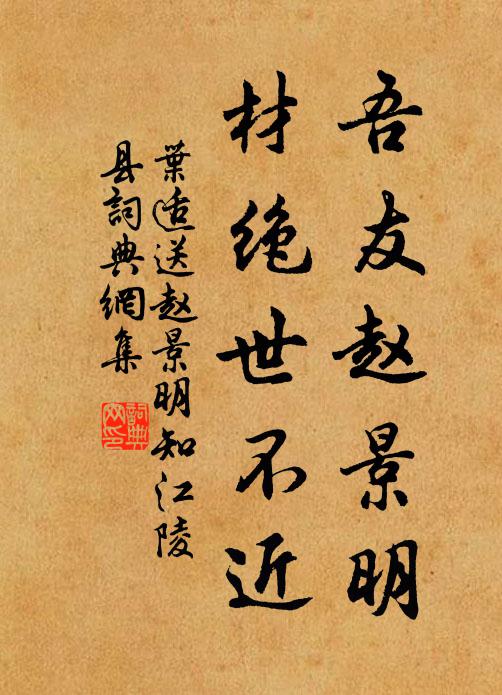 吾友赵景明
材绝世不近
葉适送赵景明知江陵
县詞典網集
詞典
网印